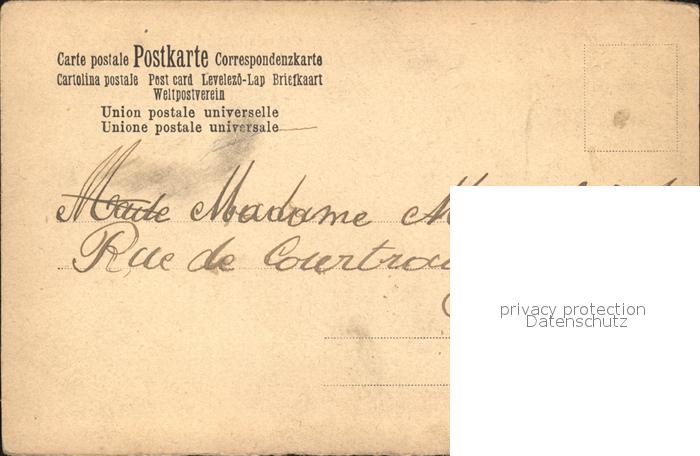 Carte postale Postkarte Correspondenzkarte
Cartolina postale Post card Levelező-Lap Briefkaart
Weltpostverein
Union postale universelle
Unione postale universale
Madame
Rue de
privacy protection
Datenschutz